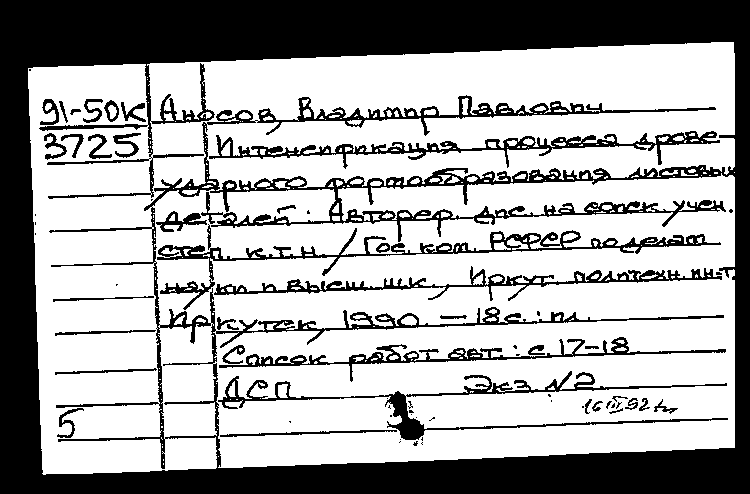 91-50К Аносов, Владимир Павлович
3725 Интенсификация процесса дрове-
ударного формообразования листовых
деталей : Автореф. дис. на соиск. учен.
степ. к.т.н. / Гос. ком. РСФСР по делам
науки и высш. шк., Иркут. политехн. ин-т.
Иркутск, 1990. — 18 с. : ил.
Список работ авт. : с. 17-18
ДСП. Экз. №2.
16 III 92
5